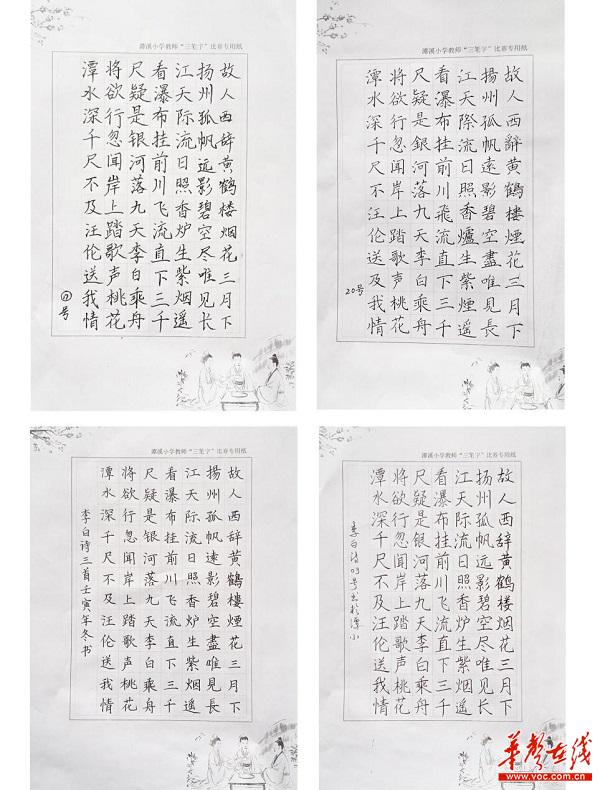 潭溪小学教师“三笔字”比赛专用纸
故人西辞黄鹤楼烟花三月下
扬州孤帆远影碧空尽唯见长
江天际流日照香炉生紫烟遥
看瀑布挂前川飞流直下三千
尺疑是银河落九天李白乘舟
将欲行忽闻岸上踏歌声桃花
潭水深千尺不及汪伦送我情
号
潭溪小学教师“三笔字”比赛专用纸
故人西辭黄鶴樓煙花三月下
揚州孤帆遠影碧空盡唯見長
江天際流日照香爐生紫煙遥
看瀑布挂前川飛流直下三千
尺疑是銀河落九天李白乘舟
將欲行忽聞岸上踏歌声桃花
潭水深千尺不及汪伦送我情
20号
潭溪小学教师“三笔字”比赛专用纸
故人西辞黄鶴樓煙花三月下
揚州孤帆遠影碧空盡唯見長
江天际流日照香炉生紫烟遥
看瀑布挂前川飞流直下三千
尺疑是银河落九天李白乘舟
将欲行忽闻岸上踏歌聲桃花
潭水深千尺不及汪伦送我情
李白诗三首壬寅年冬书
潭溪小学教师“三笔字”比赛专用纸
故人西辞黄鹤楼烟花三月下
扬州孤帆远影碧空尽唯见长
江天际流日照香炉生紫烟遥
看瀑布挂前川飞流直下三千
尺疑是银河落九天李白乘舟
将欲行忽闻岸上踏歌声桃花
潭水深千尺不及汪伦送我情
李白诗03号书于潭小
华声在线
www.voc.com.cn